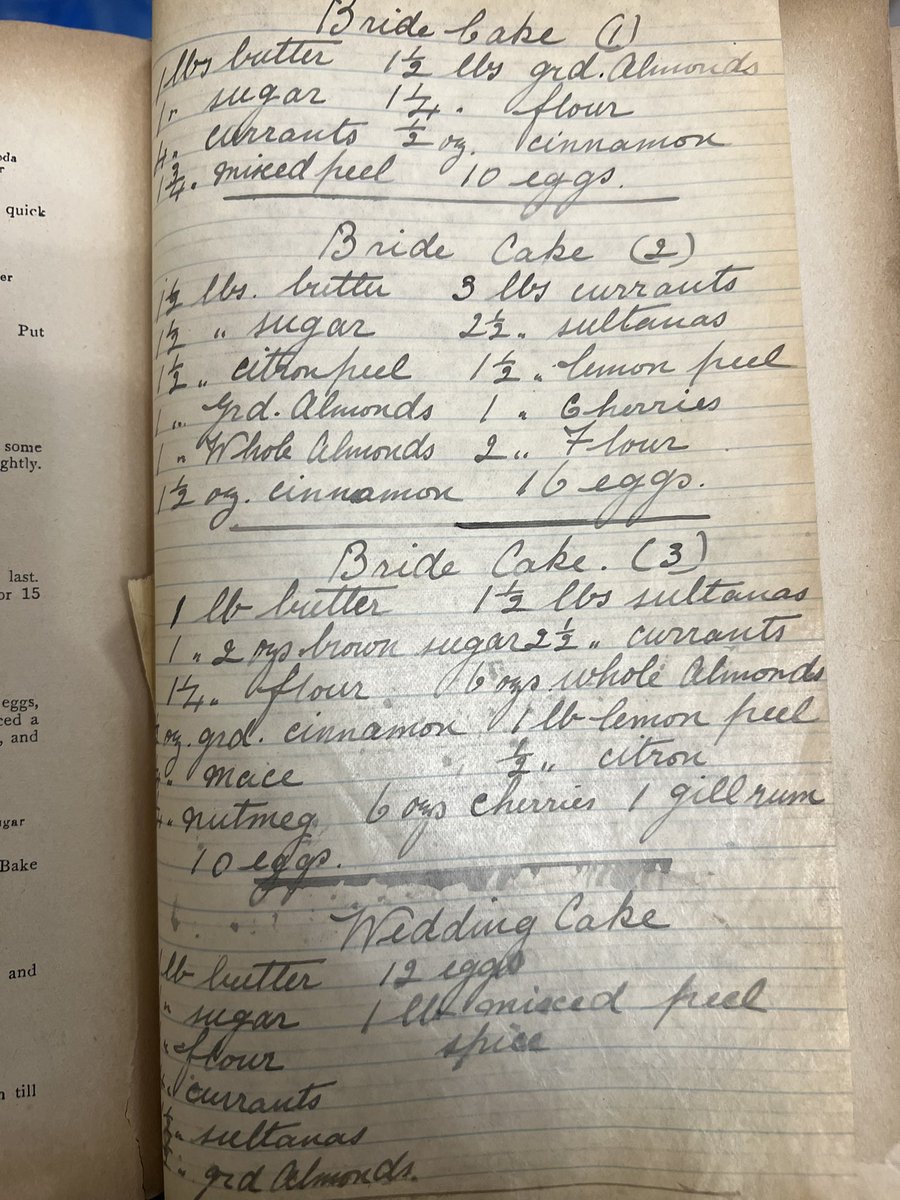 oda
r
quick
er
Put
some
ghtly.
last.
or 15
eggs,
ced a
, and
ugar
Bake
and
n till
Bride Cake (1)
1 lbs butter 1½ lbs grd. Almonds
1 " sugar 1¼ " flour
4 " currants ½ oz. cinnamon
1¾ " mixed peel 10 eggs.
Bride Cake (2)
1½ lbs. butter 3 lbs currants
1½ " sugar 2½ " sultanas
1½ " citron peel 1½ " lemon peel
1 " Grd. Almonds 1 " Cherries
1 " Whole Almonds 2 " Flour
1½ oz. cinnamon 16 eggs.
Bride Cake. (3)
1 lb butter 1½ lbs sultanas
1 " 2 ozs brown sugar 2½ " currants
1¼ " flour 6 ozs whole Almonds
oz. grd. cinnamon 1 lb lemon peel
" mace ½ " citron
" nutmeg 6 ozs cherries 1 gill rum
10 eggs.
Wedding Cake
lb butter 12 eggs
" sugar 1 lb mixed peel
" flour spice
" currants
" sultanas
" grd Almonds.